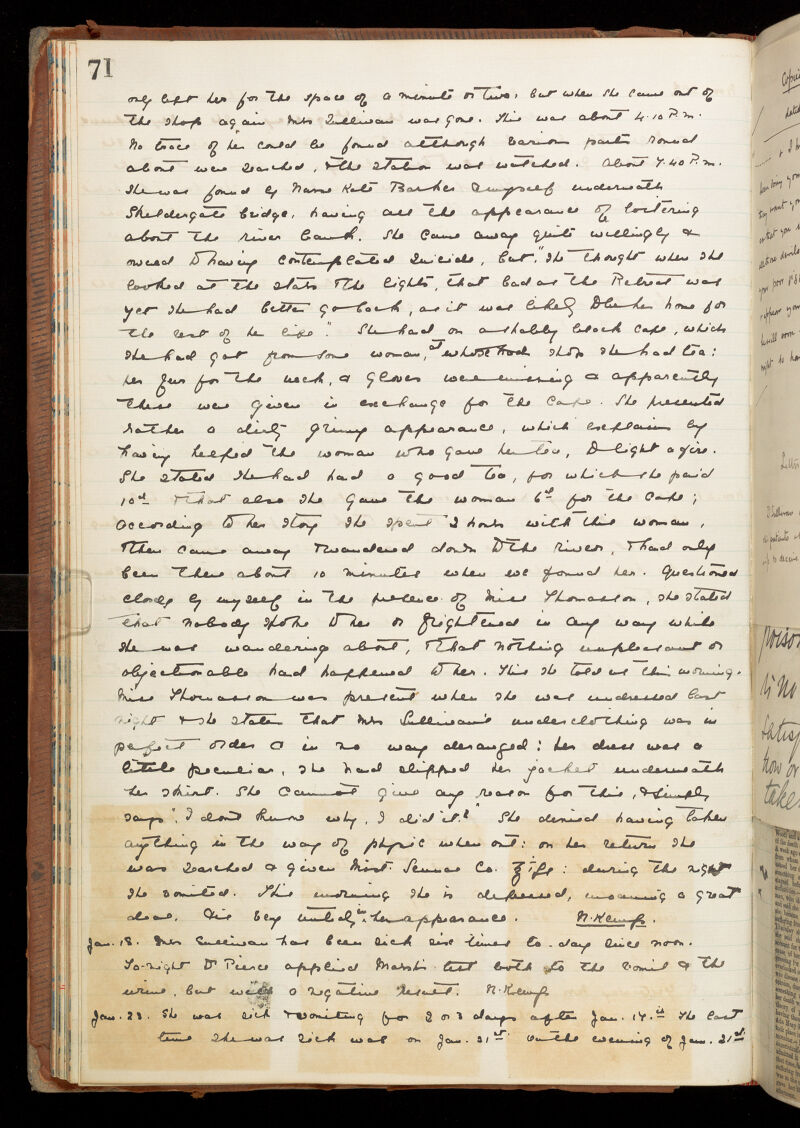 71
only left her for the space of a minute or two, but when she came out of
the shop again Mrs Sullivan was gone. This was about 4.10 P.m.
No trace of her could be found although various parts round
about were searched, & the station was watched. About 7.40 P.m.
she was found by Nurse Kate Barker & myself underneath
Skeldergate bridge, having all the appearance of loitering
about the river bank. She came away quite willingly &
owned to having contemplated suicide, but "she thought when she
looked at the stars & the lights, that bad as the Retreat was
yet she had better go back, as it was likely to be her home for
the rest of her life". She had on a shabby black cape, which
she had got from some woman, at whose shop she had tea:
her fur for the neck, & gloves were missing & apparently
these were given in exchange for the cape. She presented
rather a dirty grimy appearance, which explains by
having helped the woman who gave her tea, to light a fire.
She stated she had had a good tea, for which she paid
10d & that also she gave the woman 6d for the cape;
according to her story she spent 2 hours with this woman,
& then came away & wandered down to the river, & had only
been there about 10 minutes when we found her. Questioned
closely by myself in the presence of Miss Thomasson, she stated
that nobody spoke to her or frightened in any way while
she was wandering about, & that nothing unpleasant or
objectionable had happened to her. This she told us this morning.
Miss Thomasson was present when she was undressed last
night & she states that Mrs Sullivan's underclothing was in
perfect order & in no way deranged: her dress was a
little peculiar, she had slipped her jacket underneath
her skirt. She cannot give any reason for this, & simply
says "I dont know why I did it." She denied having taken
anything in the way of physic when out: on her return she
was searched & given Mist. Sennae Co. : during the night
she vomited. This morning she is depressed, moaning a great
deal, & is very untidy in her appearance. N. Kemp.
Jan. 18. Mrs Sullivan has been sick six times to-day since noon.
To-night Dr Pierce applied Marsh's test both to the vomit & the
urine, but with a negative result. N. Kemp
Jan. 23. She was sick & vomiting for 2 or 3 days after Jan. 17.th The last
time she was sick was on Jan. 21st. On the evening of Jan. 21st